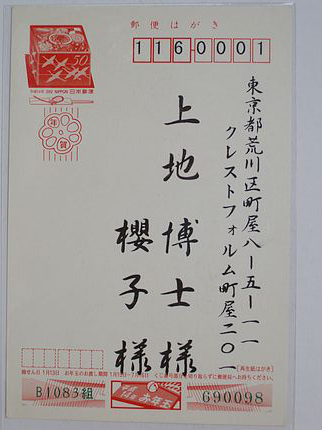 郵便はがき
50
日本郵便
116-0001
東京都荒川区町屋八ー五ー一一
クレストフォルム町屋二〇一
上地博士様
櫻子様
年賀
お年玉
B1083組
690098